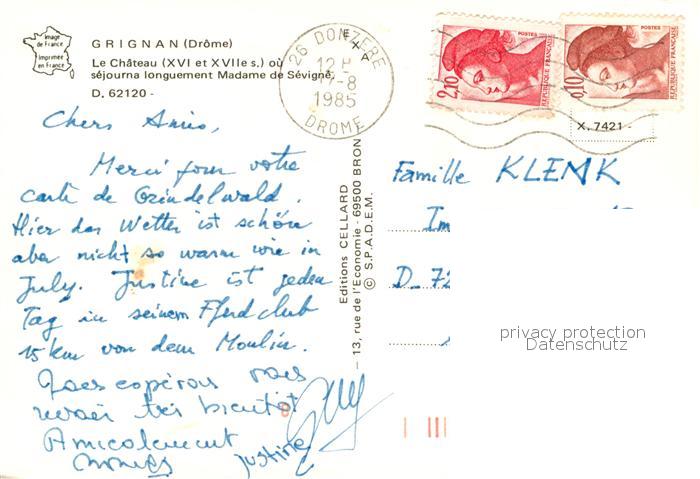 Image
de France
Imprimée
en France
GRIGNAN (Drôme)
Le Château (XVI et XVIIe s.) où
séjourna longuement Madame de Sévigné.
D. 62120 -
26 DONZERE
12 H
7-8
1985
DROME
2,10
POSTES
REPUBLIQUE FRANÇAISE
0,10
POSTES
REPUBLIQUE FRANÇAISE
X. 7421 -
Chers Amis,
Merci pour votre
carte de Grindelwald.
Hier das Wetter ist schön
aber nicht so warm wie in
July. Justine ist jeden
Tag in seinem Pferdclub
15 km von dem Moulin.
Nous espérons vous
revoir très bientôt
Amicalement
Justine
Editions CELLARD
- 13, rue de l'Economie - 69500 BRON
© S.P.A.D.E.M.
Famille KLEMK
Im
D_ 72
privacy protection
Datenschutz